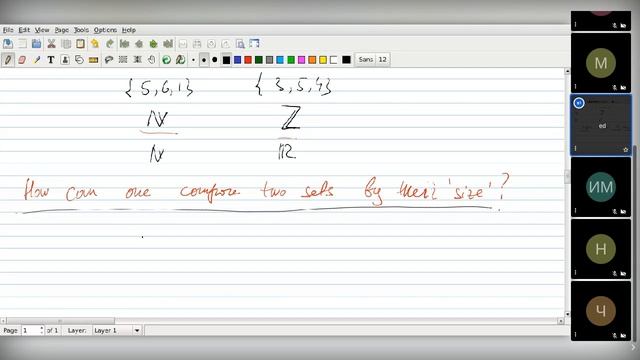 File Edit View Page Tools Options Help
Sans 12
{5,6,1} { 3,5,4}
ℕ ℤ
ℕ ℝ
How can one compare two sets by their 'size'?
M
ed
ИМ
Н
Ч
Page 1 of 1 Layer: Layer 1